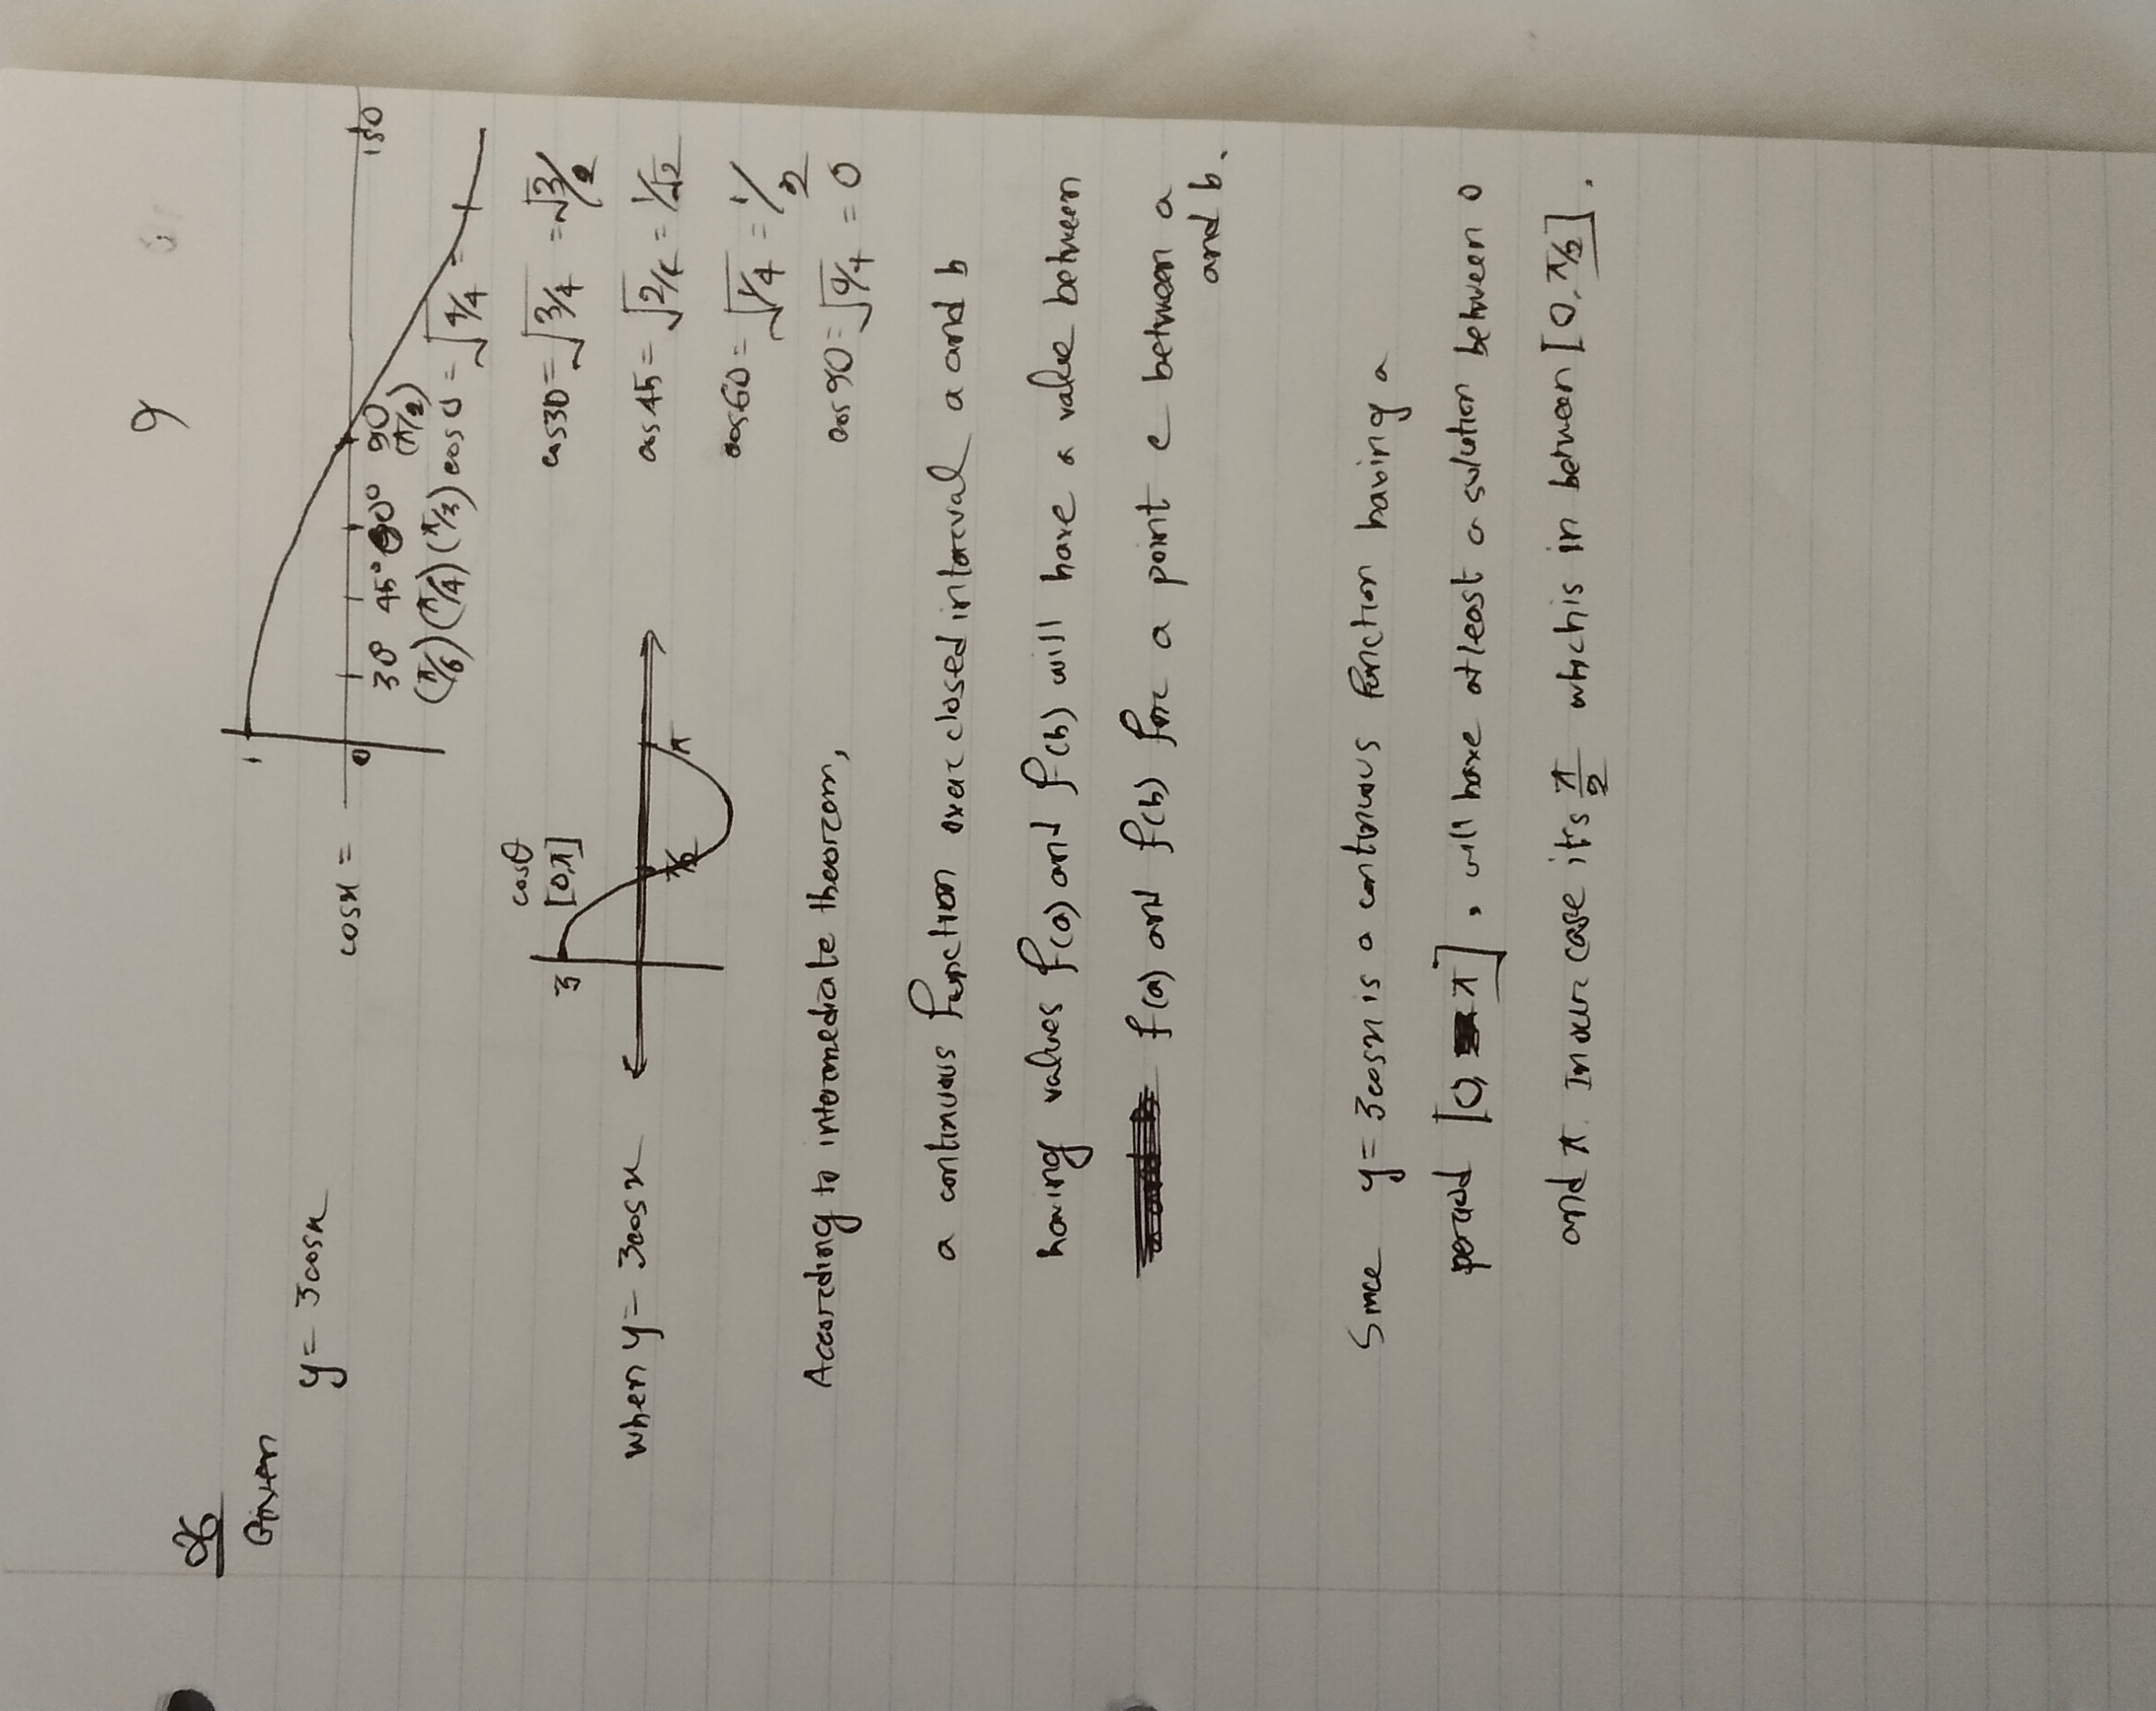 9
26
Given
y = 3cosx
1
cosx =
0 30° 45° 60° 90 180
(π/6) (π/4) (π/3) (π/2)
cos 0 = √4/4 = 1
cosθ
3 [0,π]
cos30 = √3/4 = √3/2
when y = 3cosx
π/2 π
cos 45 = √2/4 = 1/√2
cos60 = √1/4 = 1/2
According to intermediate theorem,
cos 90 = √0/4 = 0
a continuous function over closed interval a and b
having values f(a) and f(b) will have a value between
f(a) and f(b) for a point c between a
and b.
Since y = 3cosx is a continuous function having a
period [0, π], will have at least a solution between 0
and π. In our case it's π/2 which is in between [0, π/2].